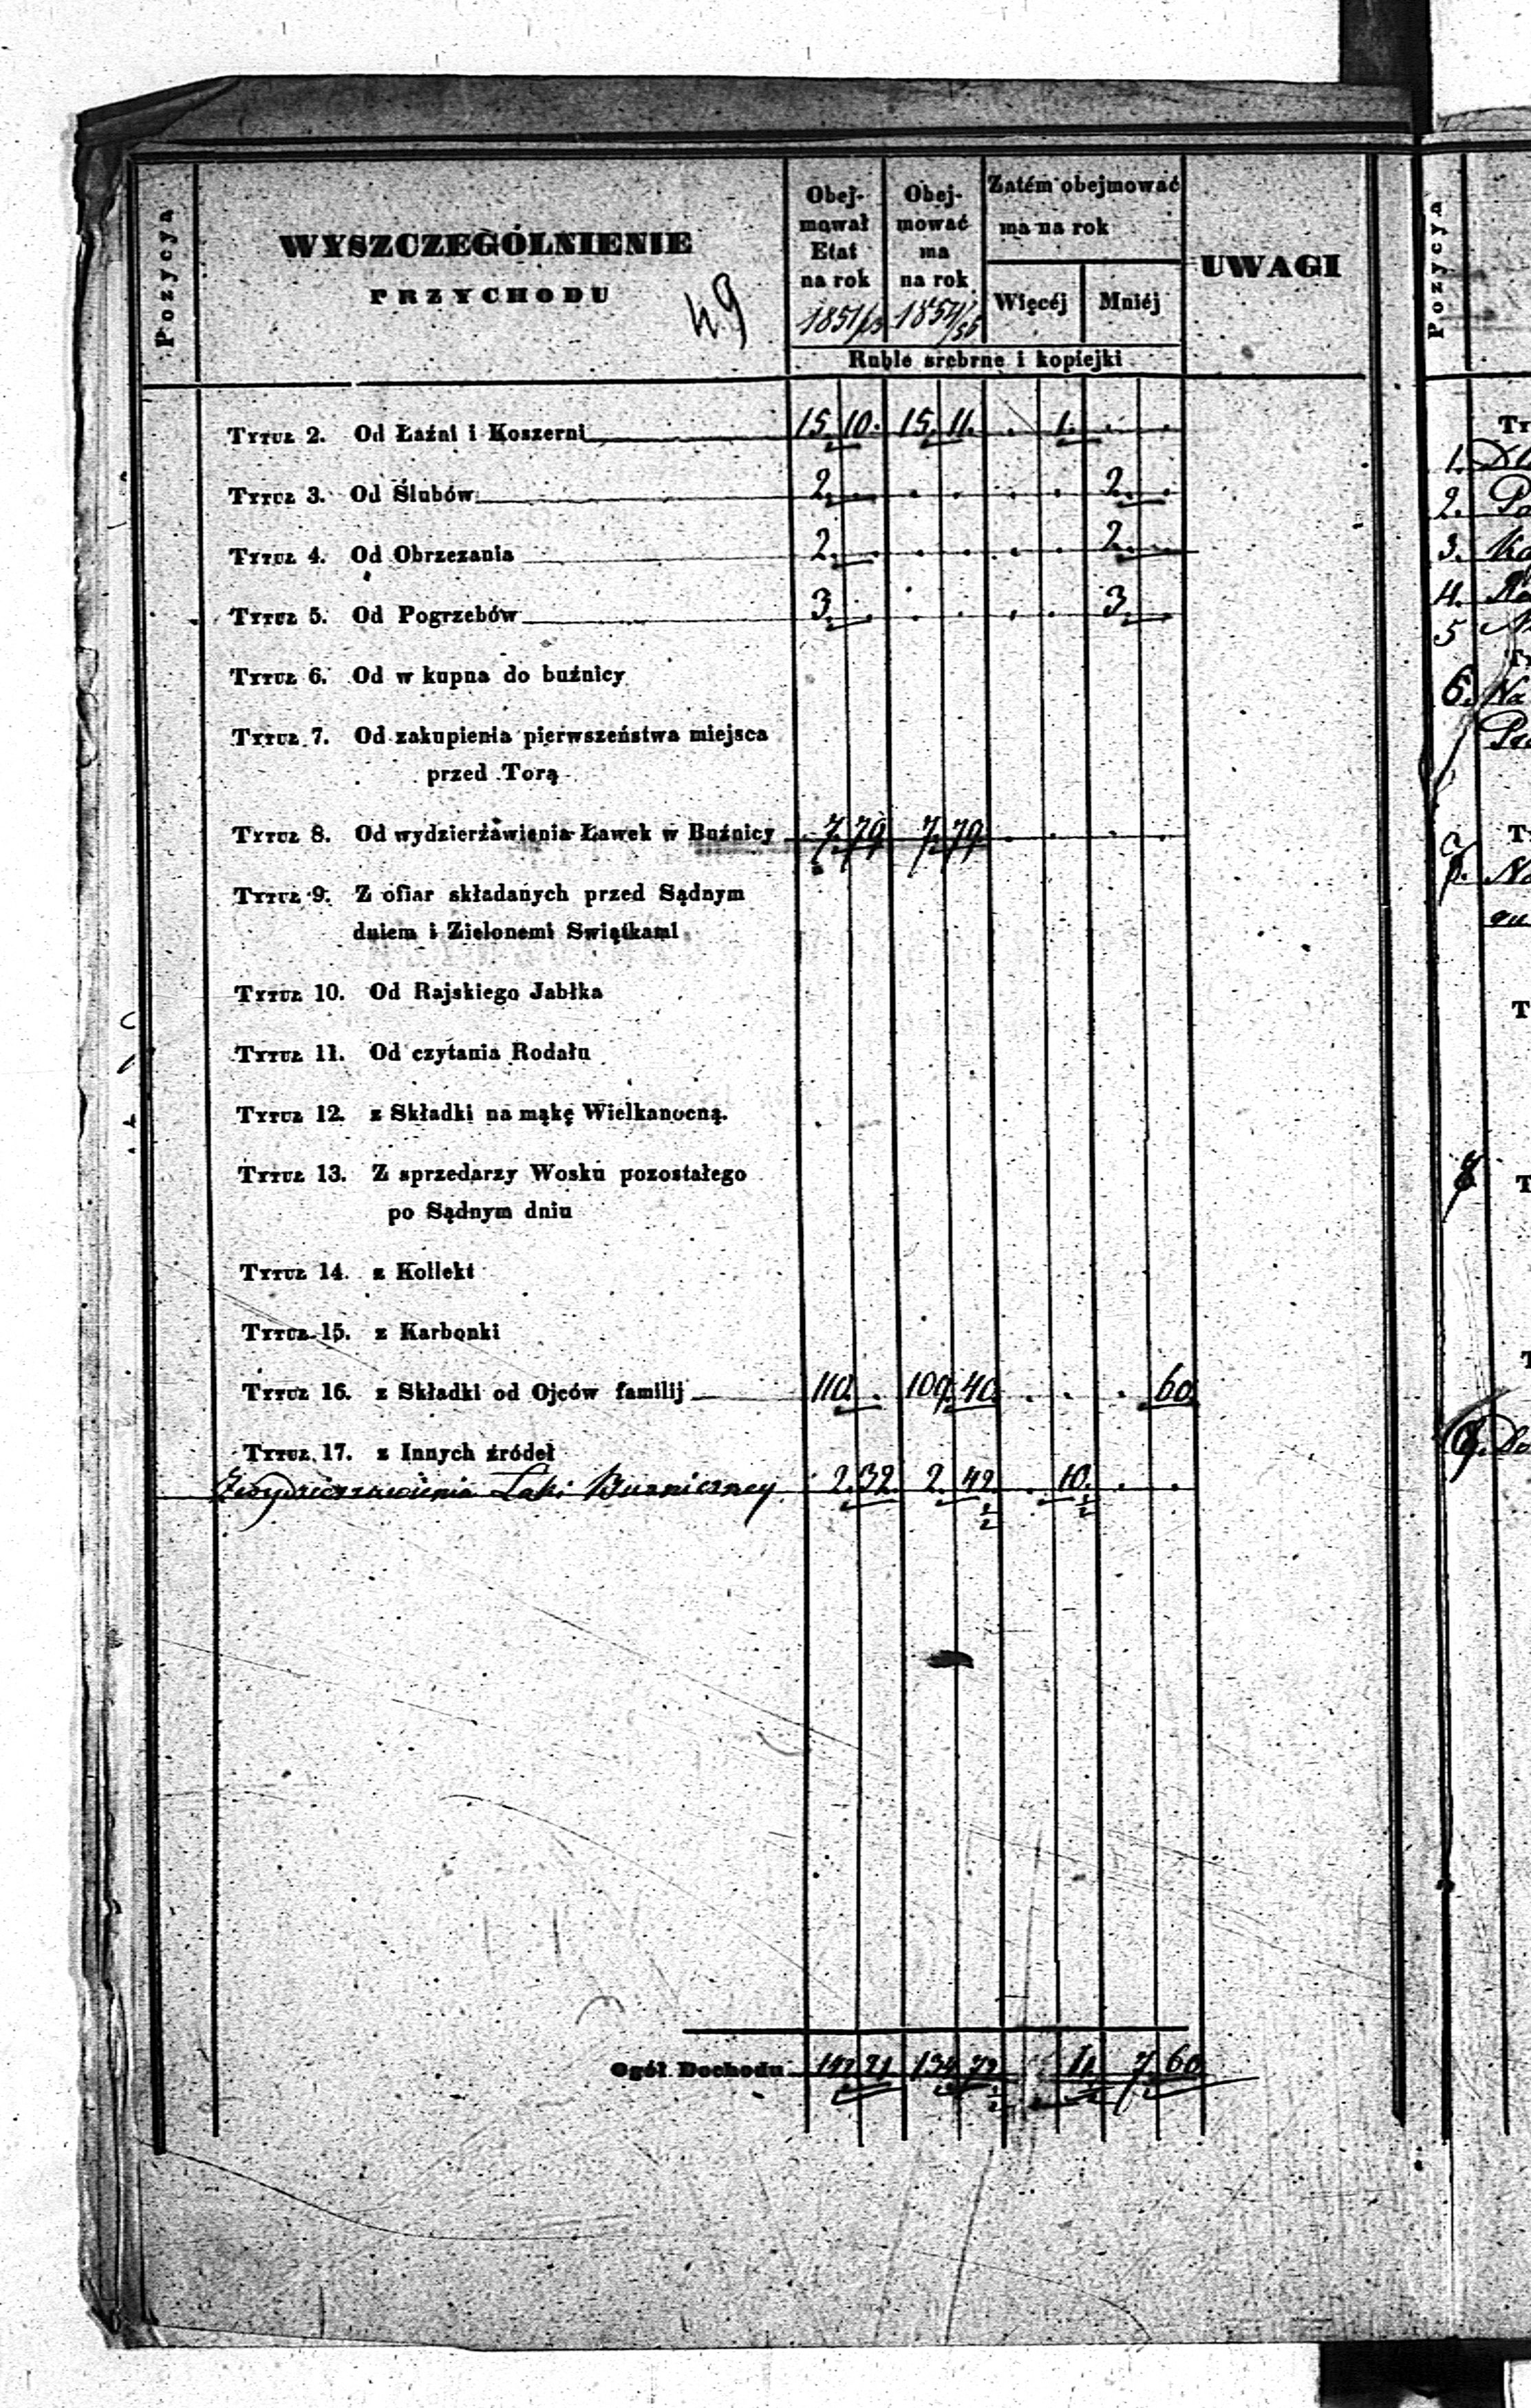 Pozycya
WYSZCZEGÓLNIENIE
PRZYCHODU
49
Obej-
mował
Etat
na rok
1851/53
Obej-
mować
ma
na rok
1854/55
Zatém obejmować
ma na rok
Więcéj
Mniéj
Ruble srebrne i kopiejki
UWAGI
Pozycya
Tytuł 2. Od Łaźni i Koszerni 15. 10. 15. 11. . 1. . .
Tytuł 3. Od Ślubów 2. . . . . . 2. .
Tytuł 4. Od Obrzezania 2. . . . . . 2. .
Tytuł 5. Od Pogrzebów 3. . . . . . 3. .
Tytuł 6. Od w kupna do buźnicy
Tytuł 7. Od zakupienia pierwszeństwa miejsca
przed Torą
Tytuł 8. Od wydzierżawienia Ławek w Buźnicy 7. 79 7. 79 . . . .
Tytuł 9. Z ofiar składanych przed Sądnym
dniem i Zielonemi Swiątkami
Tytuł 10. Od Rajskiego Jabłka
Tytuł 11. Od czytania Rodału
Tytuł 12. z Składki na mąkę Wielkanocną.
Tytuł 13. Z sprzedarzy Wosku pozostałego
po Sądnym dniu
Tytuł 14. z Kollekt
Tytuł 15. z Karbonki
Tytuł 16. z Składki od Ojców familij 110. . 109. 40. . . . 60.
Tytuł 17. z Innych źródeł
Z wydzierzawienia Łaki Buzniczney 2. 32. 2. 42 1/2 . 10. 1/2 . .
Ogół Dochodu 142 21 134 72 1/2 11. 1/2 7. 60
1.
2.
3.
4.
5
6. Na